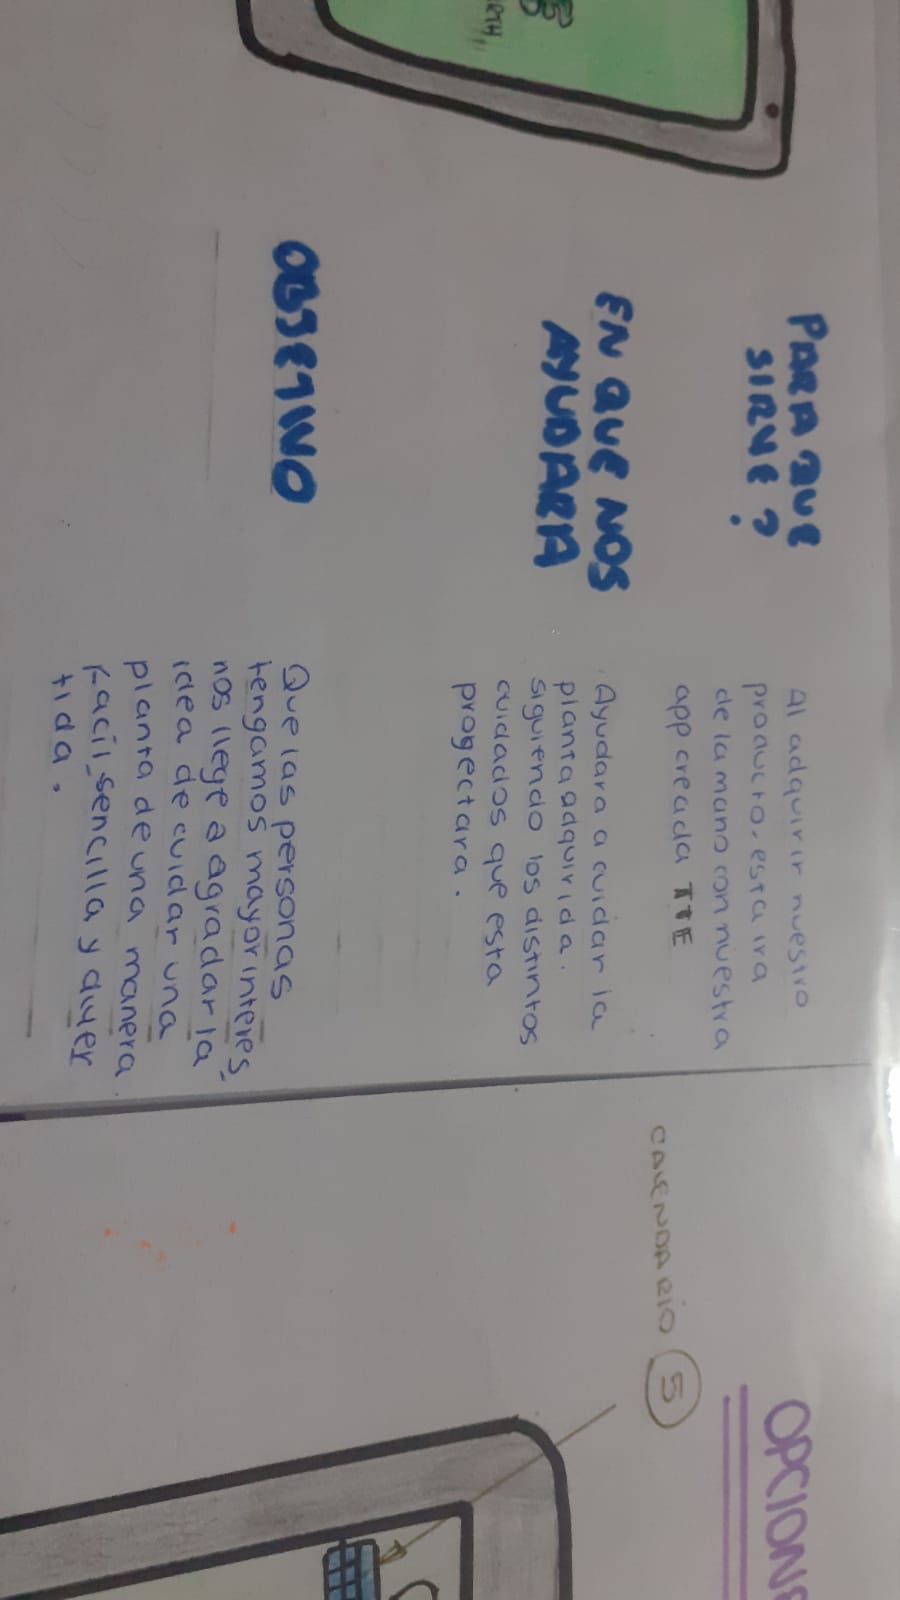 PARA QUE
SIRVE?
Al adquirir nuestro
producto, esta ira
de la mano con nuestra
app creada TTE
EN QUE NOS
AYUDARA
Ayudara a cuidar la
planta adquirida.
siguiendo los distintos
cuidados que esta
progectara.
OBJETIVO
Que las personas
tengamos mayor interes,
nos llege a agradar la
idea de cuidar una
planta de una manera
facil, sencilla y diver
tida.
OPCIONE
CALENDARIO 5
RTH